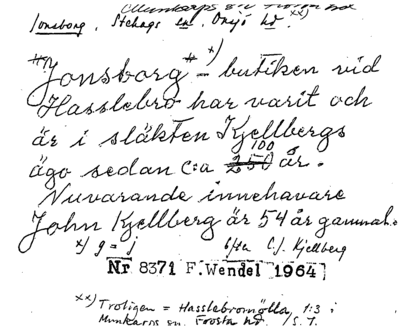 Munkarps sn Frosta hd
Jonsborg. Stehags sn, Onsjö hd. xx)
"Jonsborg" x) - butiken vid
Hasslebro har varit och
är i släkten Kjellbergs
100
ägo sedan c:a 250 år.
Nuvarande innehavare
John Kjellberg är 54 år gammal.
x) g = j C. J. Kjellberg
Nr 8371 F. Wendel 1964
xx) Troligen = Hasslebromölla, 1:3 i
Munkarps sn. Frosta hd. S. T.